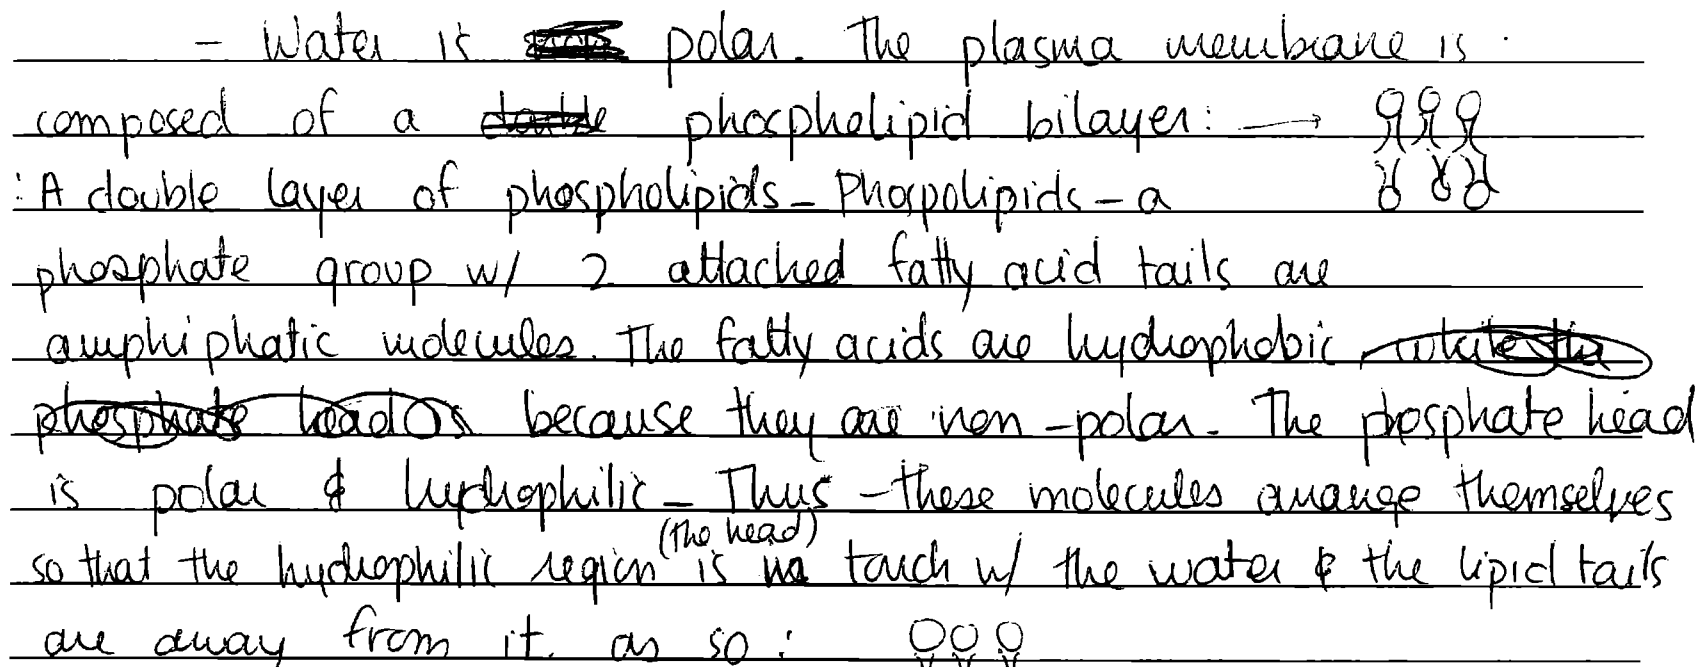 - Water is polar. The plasma membrane is
composed of a double phospholipid bilayer: →
: A double layer of phospholipids - Phospolipids - a
phosphate group w/ 2 attached fatty acid tails are
amphiphatic molecules. The fatty acids are hydrophobic while the
phosphate head is because they are non-polar. The phosphate head
is polar & hydrophilic - Thus - these molecules arrange themselves
(the head)
so that the hydrophilic region is in touch w/ the water & the lipid tails
are away from it. as so :